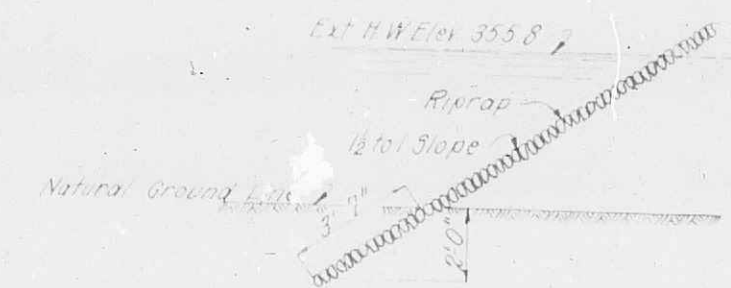 Ext H.W Elev 355.8
Riprap
1½ to 1 Slope
Natural Ground Line
3'-7"
2'-0"